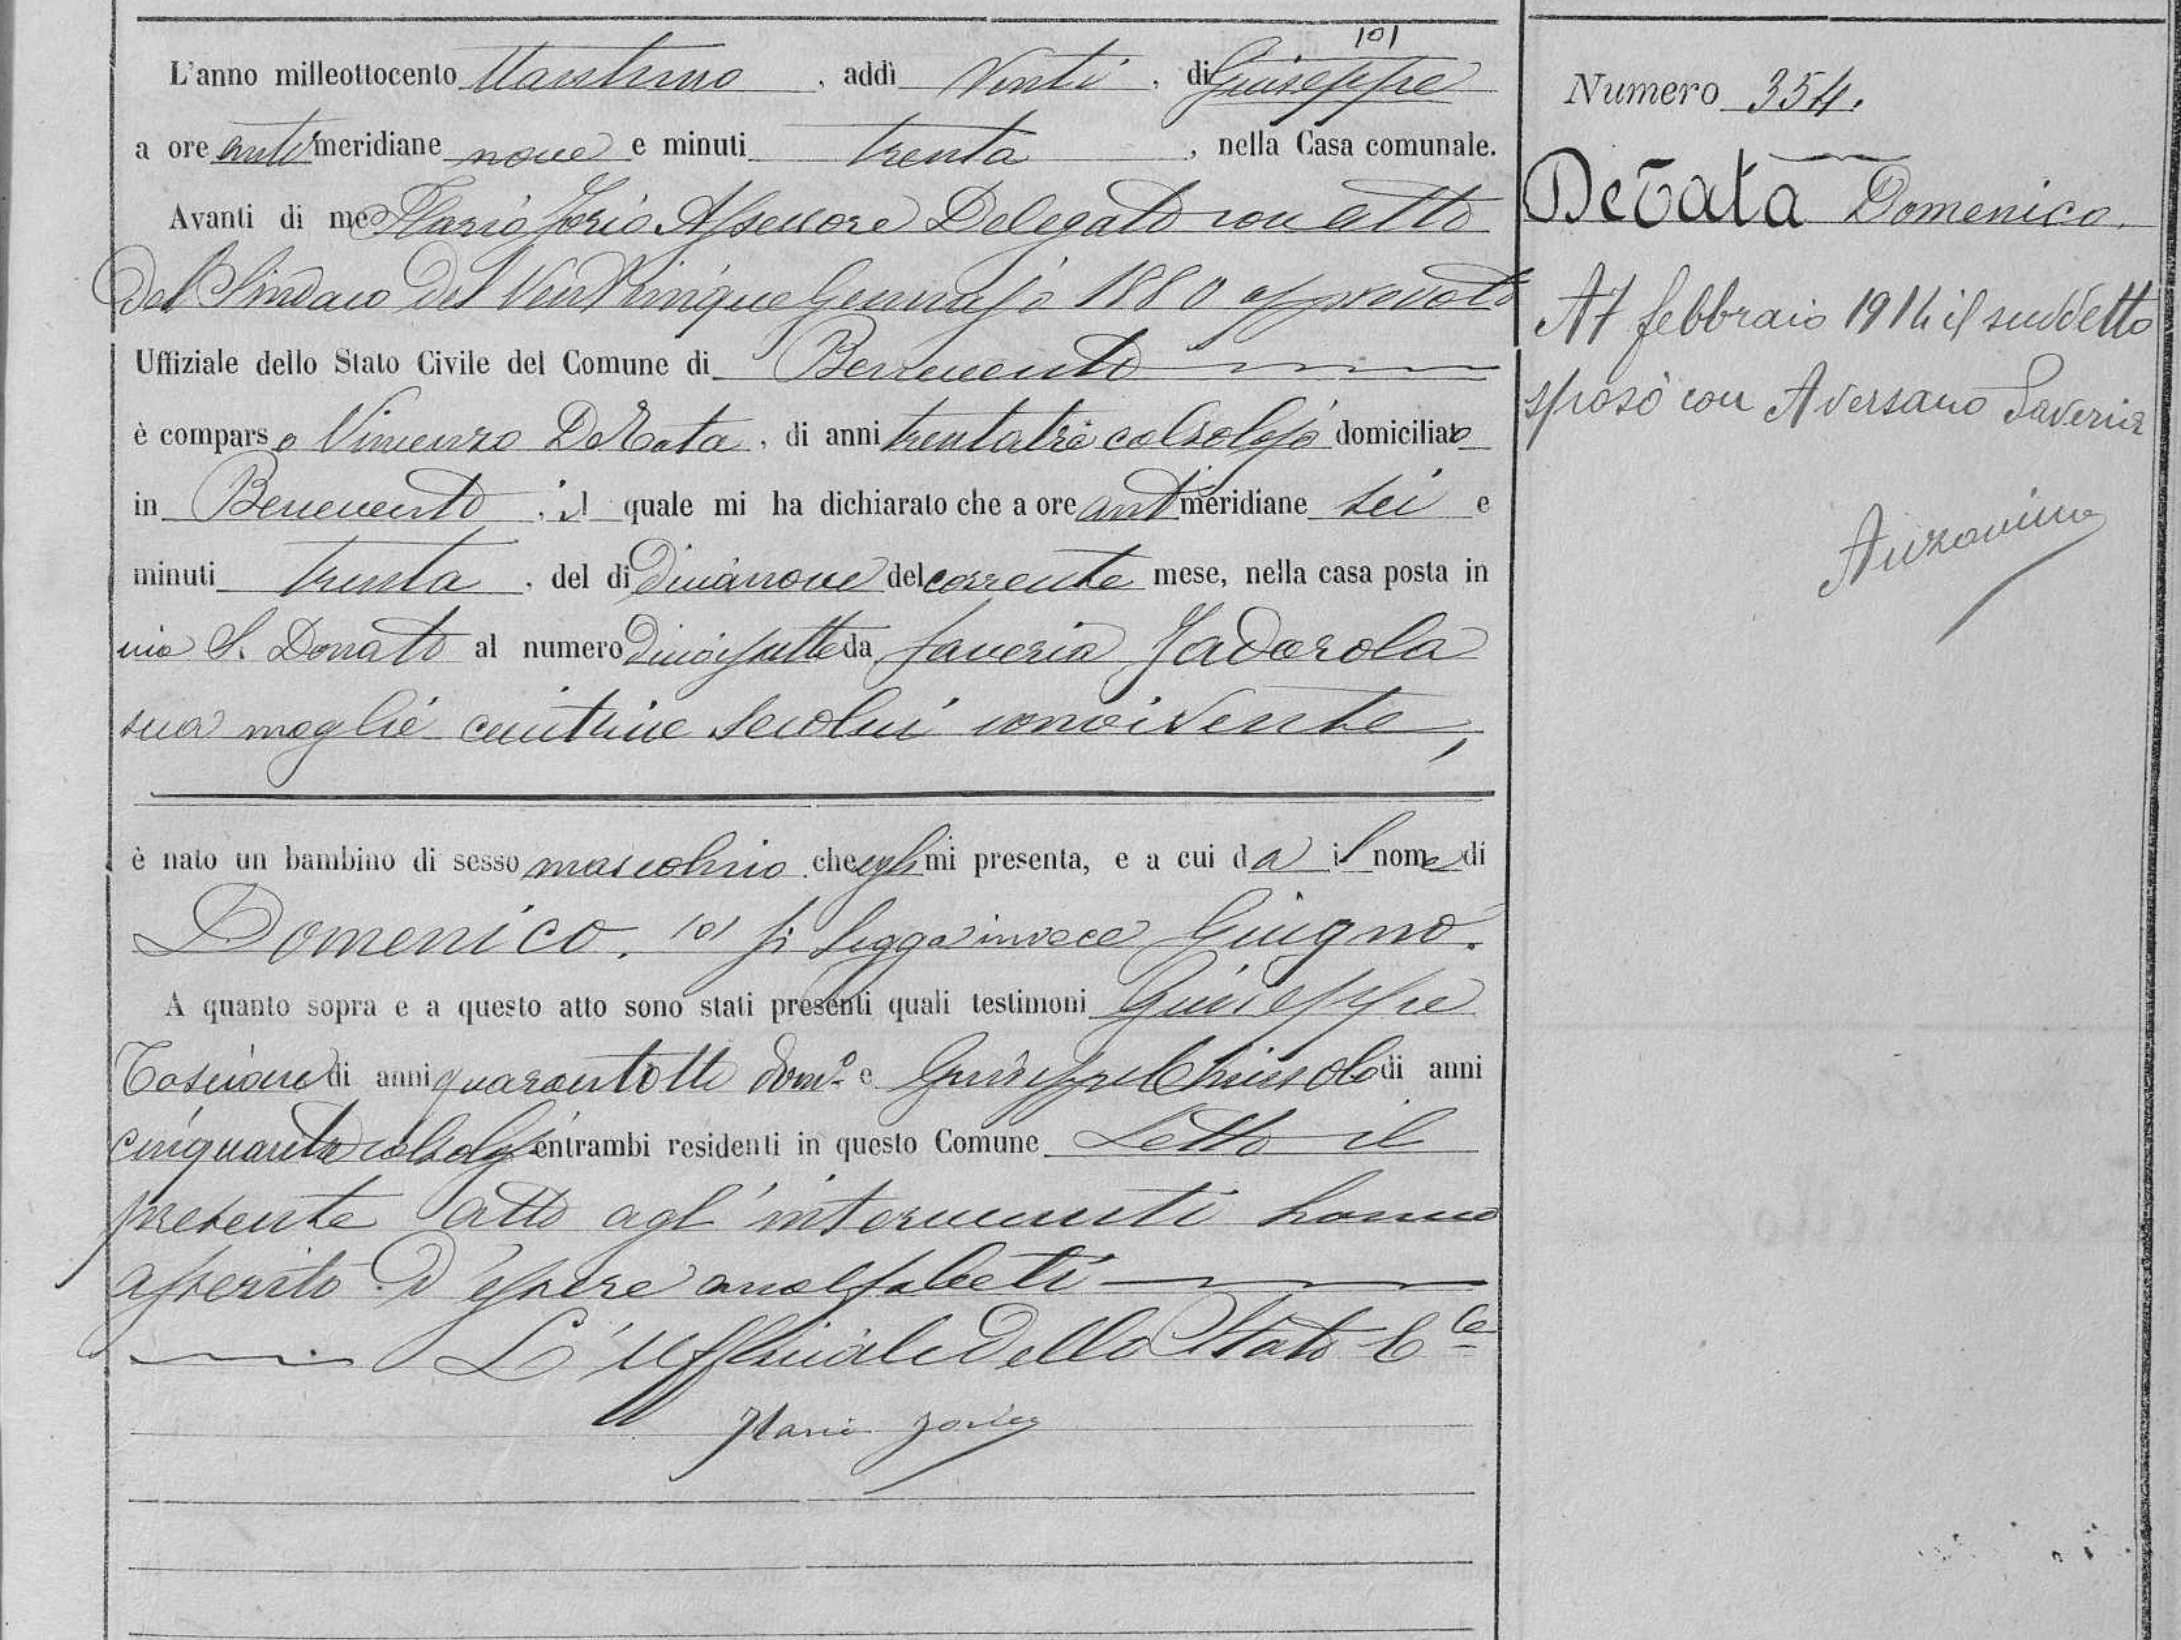 L'anno milleottocento ottantuno, addì Venti, di Giuseppe (a)
a ore antimeridiane nove e minuti trenta, nella Casa comunale.
Avanti di me Ilario Jorio Assessore Delegato con atto
del Sindaco del Venticinque Gennajo 1880 approvato
Uffiziale dello Stato Civile del Comune di Benevento
è comparso Vincenzo DeTata, di anni trentatre calzolajo domiciliato
in Benevento, il quale mi ha dichiarato che a ore antimeridiane sei e
minuti trenta, del dì diciannove del corrente mese, nella casa posta in
via S. Donato al numero diciassette da Saveria Jadarola
sua moglie seco lui convivente,
è nato un bambino di sesso mascolino che egli mi presenta, e a cui dà il nome di
Domenico. (a) si legga invece Giugno.
A quanto sopra e a questo atto sono stati presenti quali testimoni Giuseppe
di anni quarantotto dom.o e Giuseppe di anni
cinquanta calzolajo entrambi residenti in questo Comune Letto il
presente atto agl'intervenuti hanno
asserito d'essere analfabeti
L'Uffiziale dello Stato C.le
Ilario Jorio
Numero 354.
DeTata Domenico.
A 7 febbraio 1914 il suddetto
sposò con Aversano Saveria